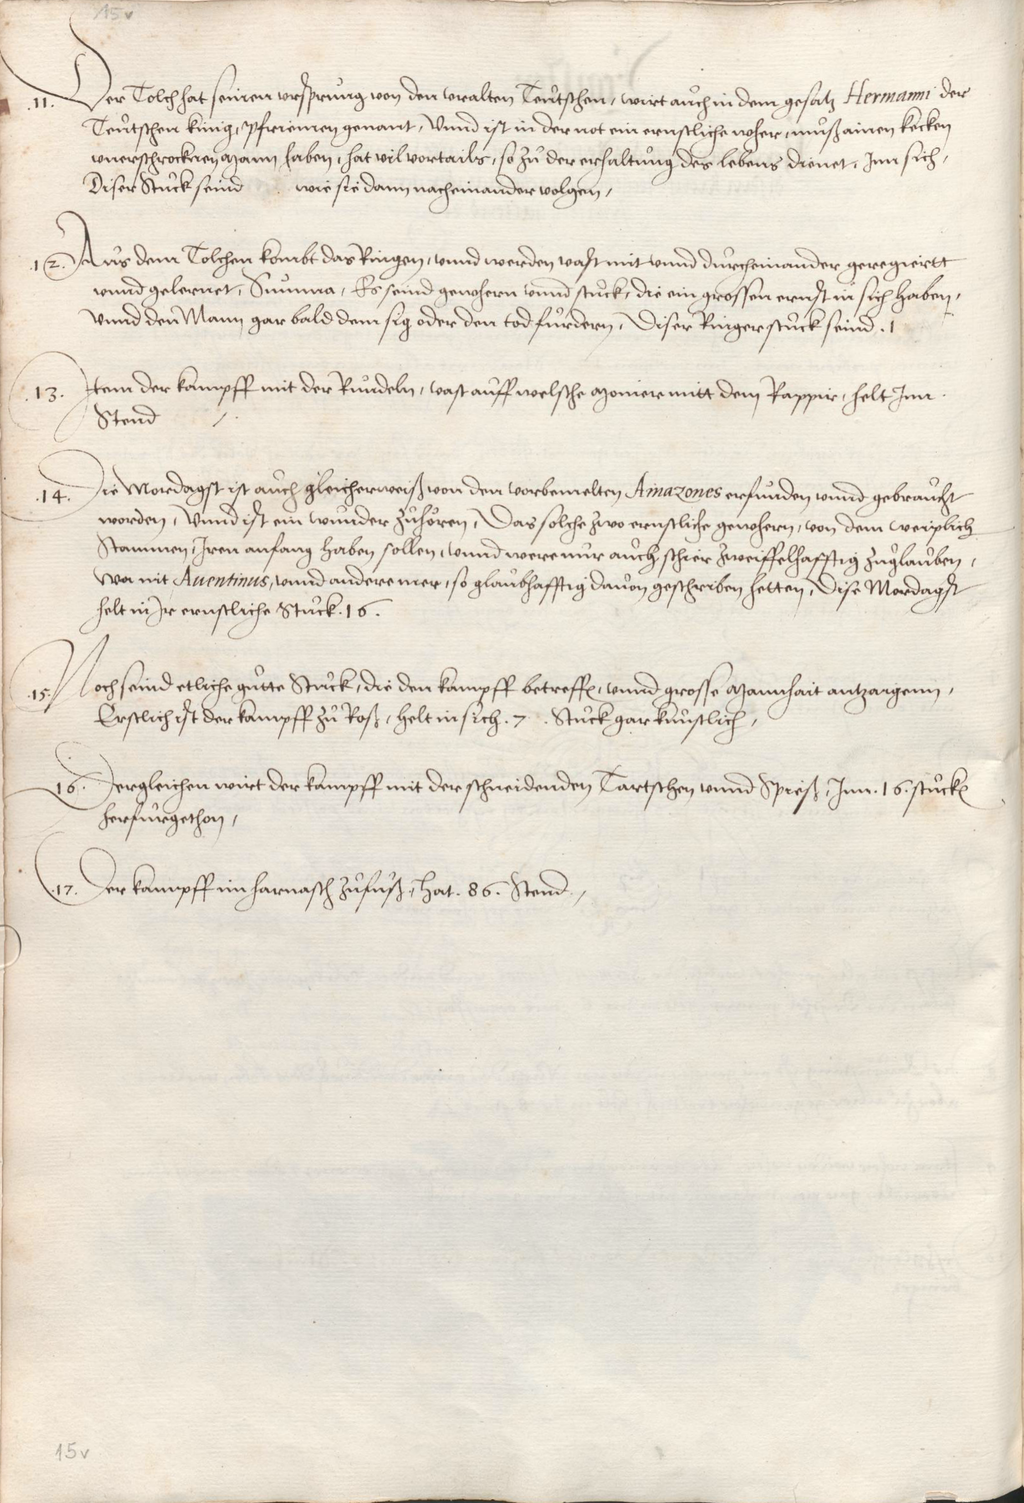 15v
.11. Der Tolch hat seinen ursprung von den uralten Teutschen, wirt auch in dem gesatz Hermanni der
Teutschen künig, pfriemen genant, Unnd ist in der not ein ernstliche woher, muß ainen kecken
unerschrocknen Mann haben, hat vil vortails, so zů der erhaltung des lebens dienet, Inn sich,
Diser Stuck seind wie sie dann nacheinander volgen,
.12. Aus dem Tolchen kombt das Ringen, unnd werden vast mit unnd durcheinander geregiertt
unnd gelernet, Summa, Es seind gewohern unnd stuck, die ein grossen ernst in sich haben,
Unnd den Mann gar bald dem sig oder den tod fürdern, Diser Ringerstuck seind .1
.13. Item der kampff mit der Rundeln, vast auff welsche Monier mitt dem Rappir, helt Inn
Stend /.
.14. Die Mordagst ist auch gleicherweiß von den vorbemelten Amazones erfunden unnd gebraucht
worden, Unnd ist ein wunder zůhören, Das solche zwo ernstliche gewohern, von dem weiplich
Stammen, Iren anfang haben sollen, unnd were nur auch schier zweiffelhafftig zůglauben,
Wa nit Auentinus, unnd andere mer, so glaubhafftig dauon geschriben hetten, Dise Mordagst
helt in Ir ernstliche Stuck .16.
.15. Noch seind etliche gůtte Stuck, die den kampff betreffen, unnd grosse Mannhait antzaigenn,
Erstlich ist der kampff zů Roß, helt in sich .7. Stuck gar künstlich,
.16. Dergleichen wirt der kampff mit der schneidenden Tartschen unnd Spieß, Inn .16. stucken
herfürgethon,
.17. Der kampff im harnasch zůfůß, hat .86. Stend,
15v